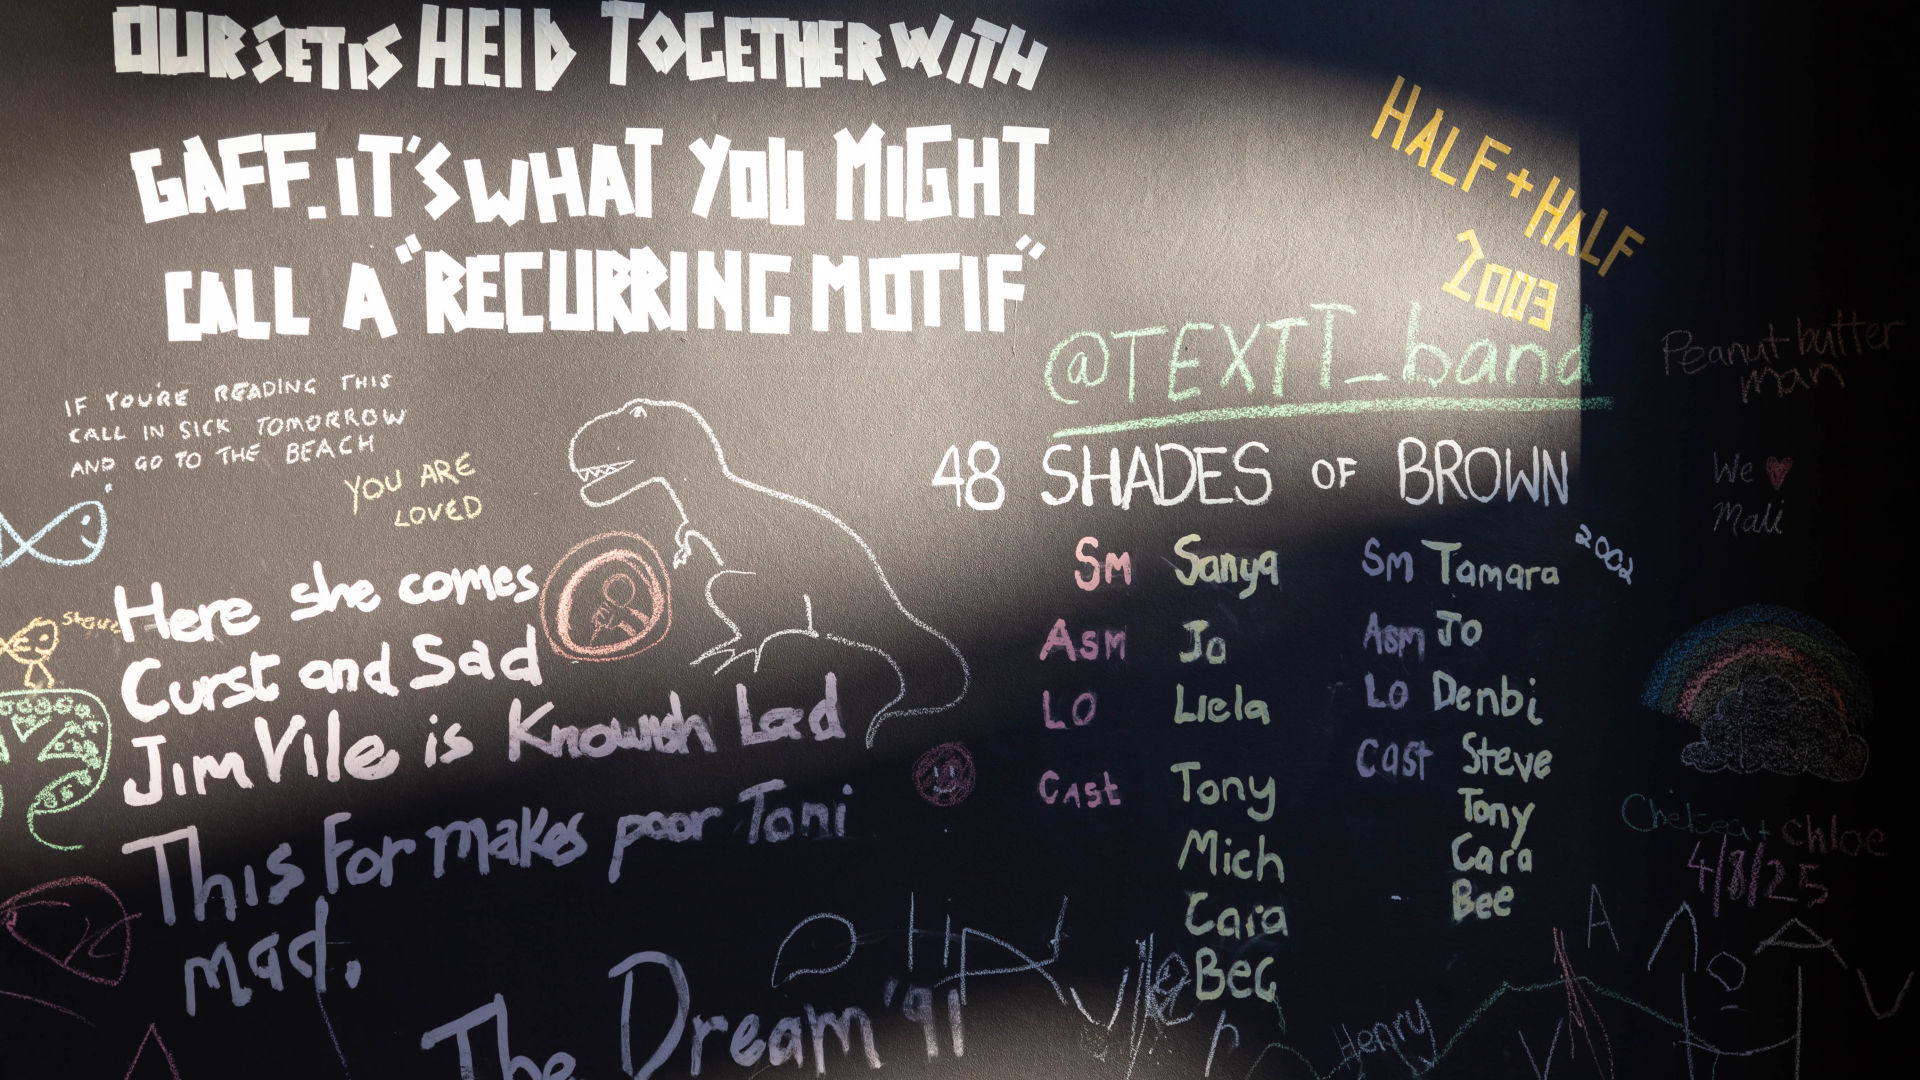 OUR SET IS HELD TOGETHER WITH
GAFF. IT'S WHAT YOU MIGHT
CALL A "RECURRING MOTIF"
HALF + HALF
2003
@TEXTT_band
Peanut butter
man
IF YOU'RE READING THIS
CALL IN SICK TOMORROW
AND GO TO THE BEACH
YOU ARE
LOVED
48 SHADES OF BROWN
2002
We
Mali
Steve
Here she comes
Curst and Sad
Jim Vile is Knowish Lad
This For makes poor Toni
mad.
The Dream '91
Sm Sanya
Asm Jo
LO Liela
Cast Tony
Mich
Cara
Bec
Sm Tamara
Asm Jo
LO Denbi
Cast Steve
Tony
Cara
Bee
Chelsea + Chloe
4/8/25
Henry